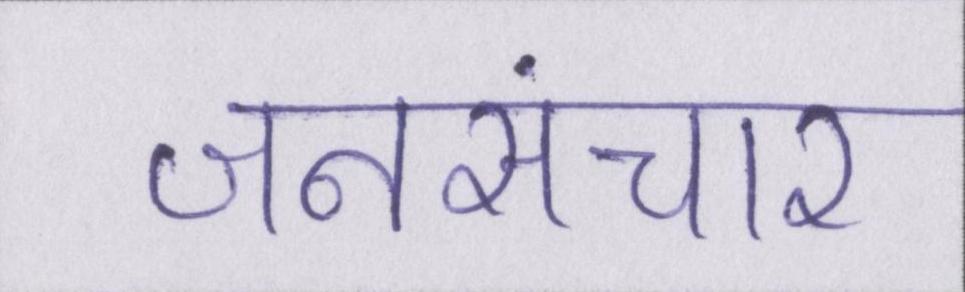 जनसंचार